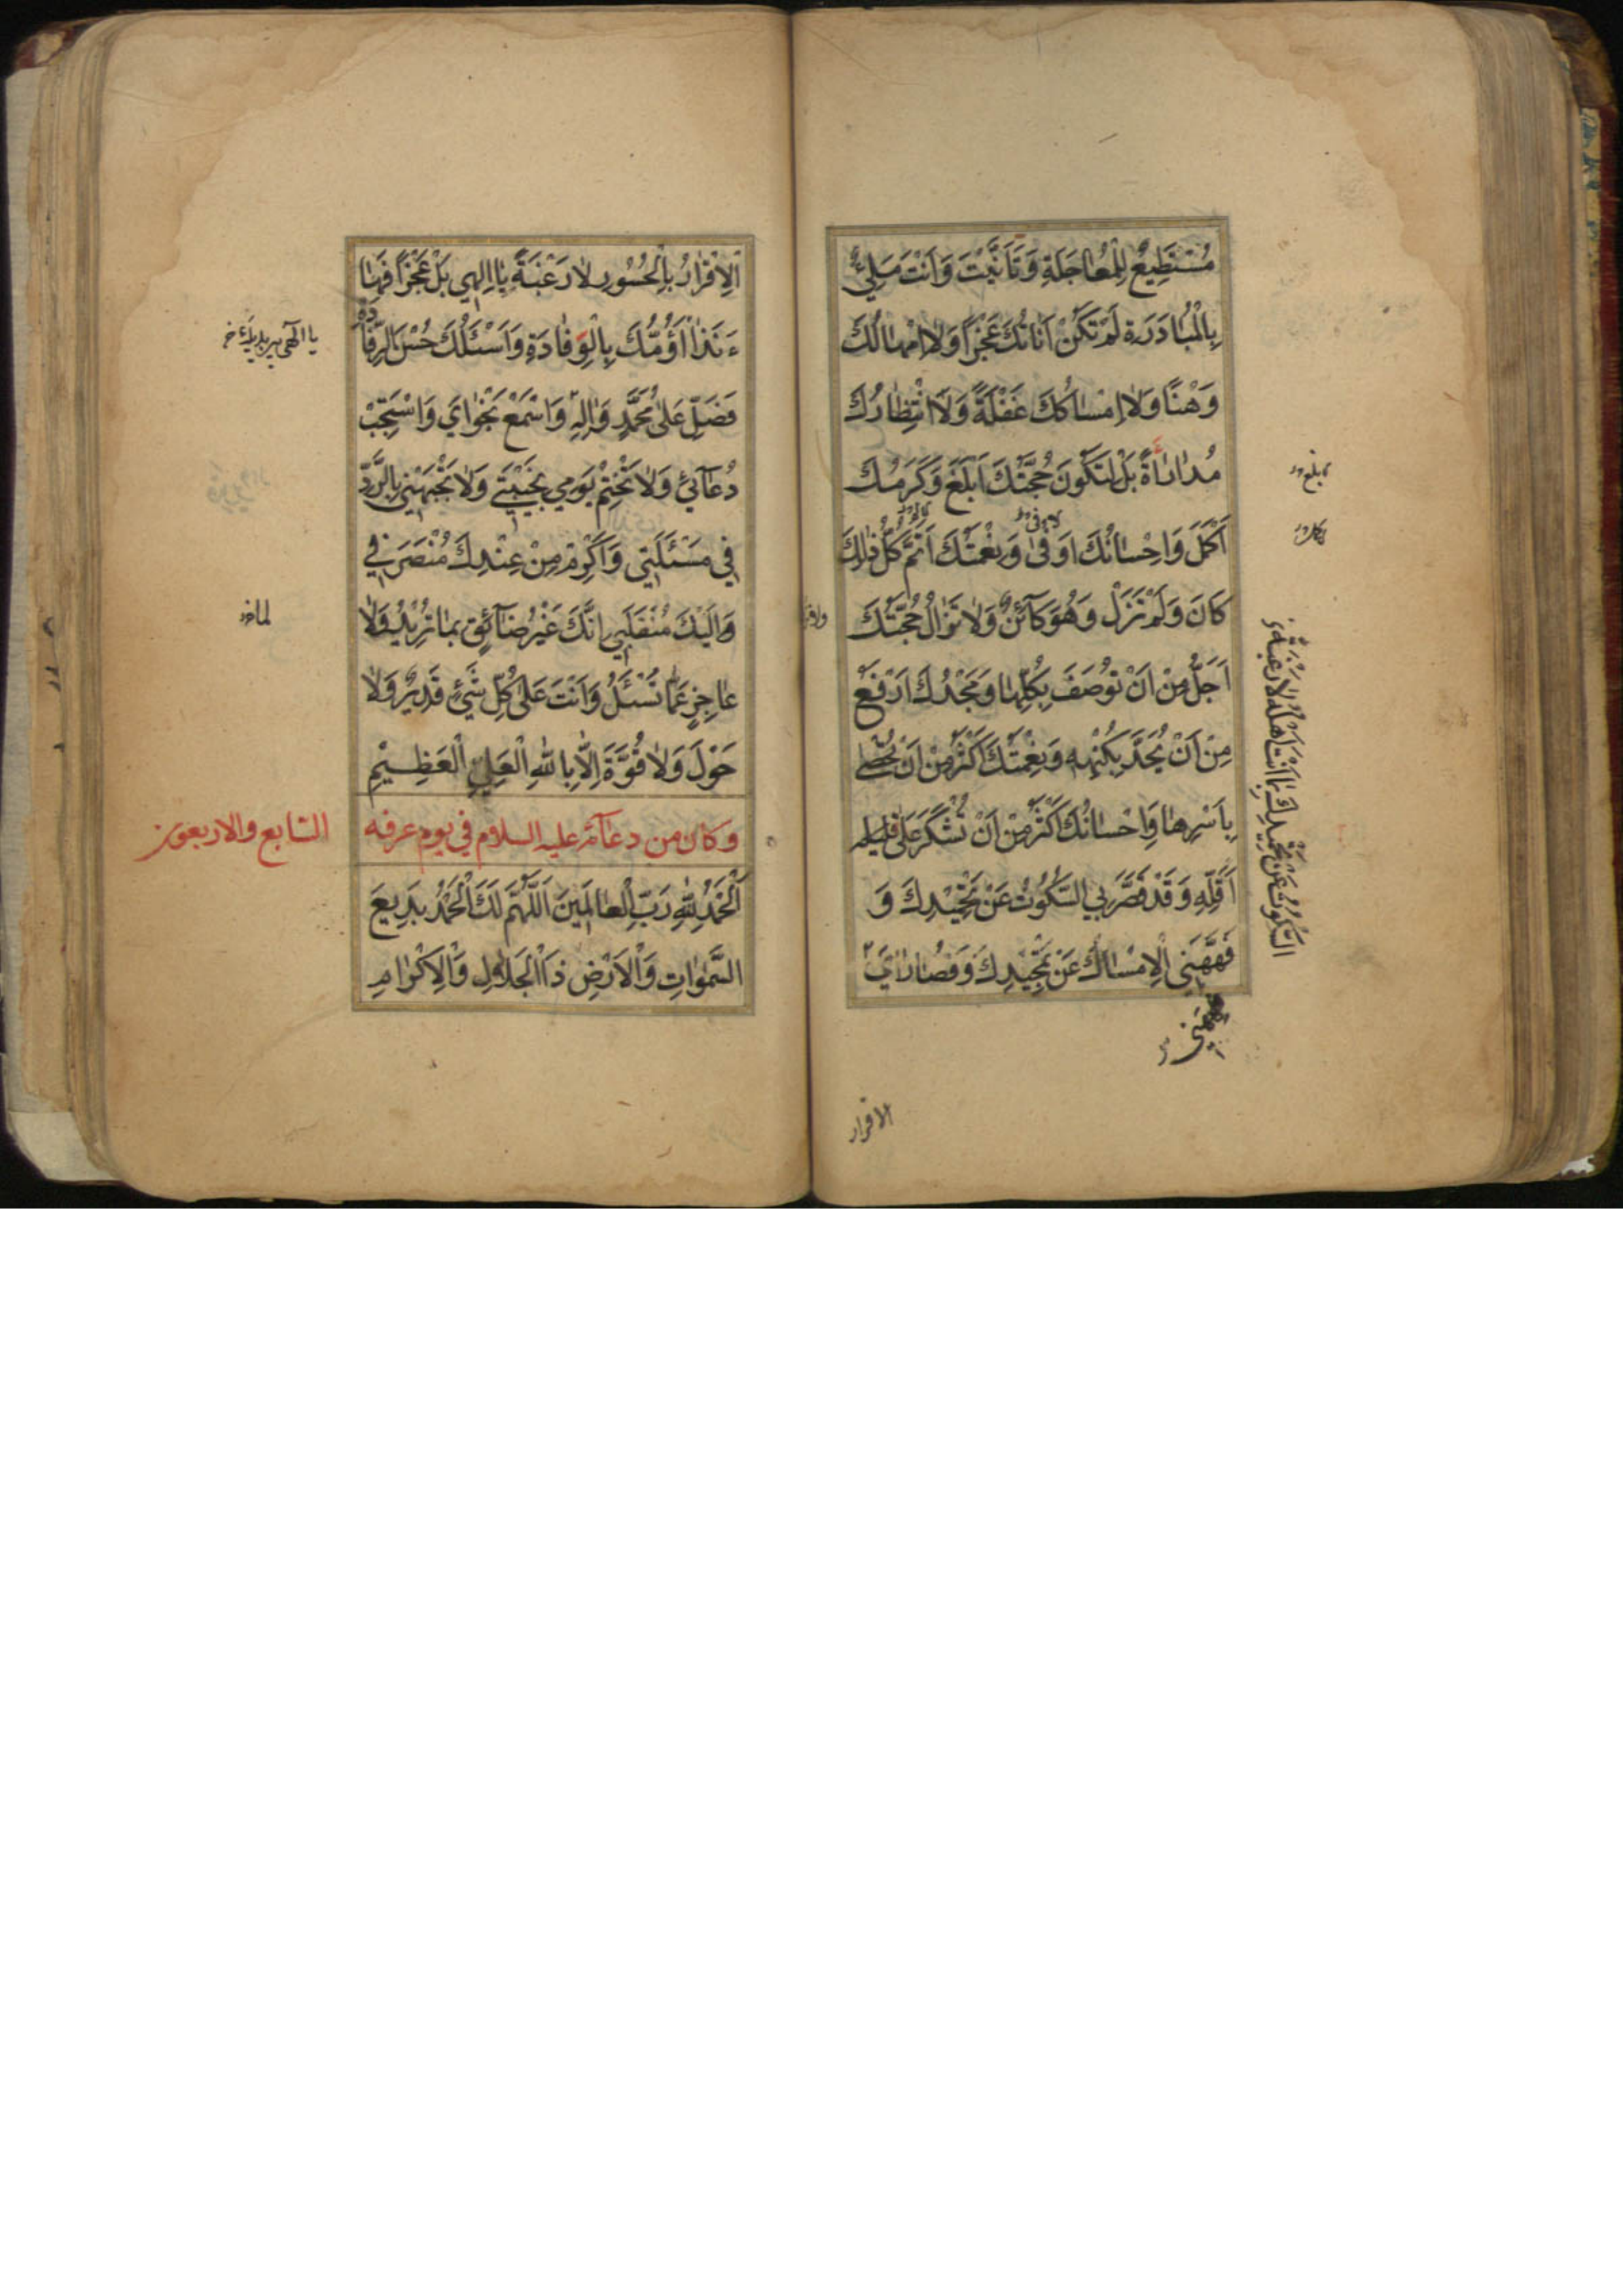 مُسْتَطِيعٌ لِلْمُعَاجَلَةِ وَتَأَنَّيْتَ وَأَنْتَ مَلِيءٌ
بِالْمُبَادَرَةِ لَمْ تَكُنْ أَنَاتُكَ عَجْزًا وَلَا إِمْهَالُكَ
وَهْنًا وَلَا إِمْسَاكُكَ غَفْلَةً وَلَا انْتِظَارُكَ
مُدَارَاةً بَلْ لِتَكُونَ حُجَّتُكَ أَبْلَغَ وَكَرَمُكَ
أَكْمَلَ وَإِحْسَانُكَ أَوْفَىٰ وَنِعْمَتُكَ أَتَمَّ كُلُّ ذٰلِكَ
كَانَ وَلَمْ تَزَلْ وَهُوَ كَآئِنٌ وَلَا تَزَالُ حُجَّتُكَ
أَجَلُّ مِنْ أَنْ تُوصَفَ بِكُلِّهَا وَمَجْدُكَ أَرْفَعُ
مِنْ أَنْ يُحَدَّ بِكُنْهِهِ وَنِعْمَتُكَ أَكْثَرُ مِنْ أَنْ تُحْصَىٰ
بِأَسْرِهَا وَإِحْسَانُكَ أَكْثَرُ مِنْ أَنْ تُشْكَرَ عَلَىٰ
أَقَلِّهِ وَقَدْ قَصَّرَ بِيَ السُّكُوتُ عَنْ تَحْمِيدِكَ وَ
فَهَّهَنِي الْإِمْسَاكُ عَنْ تَمْجِيدِكَ وَقُصَارَايَ
الاقرار
اَلْإِقْرَارُ بِالْحُسُورِ لَا رَغْبَةً يَا إِلٰهِي بَلْ عَجْزًا فَهَا
ءَنَذَا أَؤُمُّكَ بِالْوِفَادَةِ وَأَسْئَلُكَ حُسْنَ الرِّفَادَةِ
فَصَلِّ عَلَىٰ مُحَمَّدٍ وَآلِهِ وَاسْمَعْ نَجْوَايَ وَاسْتَجِبْ
دُعَآئِي وَلَا تَخْتِمْ يَوْمِي بِخَيْبَتِي وَلَا تَجْبَهْنِي بِالرَّدِّ
فِي مَسْئَلَتِي وَأَكْرِمْ مِنْ عِنْدِكَ مُنْصَرَفِي
وَإِلَيْكَ مُنْقَلَبِي إِنَّكَ غَيْرُ ضَآئِقٍ بِمَا تُرِيدُ وَلَا
عَاجِزٍ عَمَّا تُسْئَلُ وَأَنْتَ عَلَىٰ كُلِّ شَيْءٍ قَدِيرٌ وَلَا
حَوْلَ وَلَا قُوَّةَ إِلَّا بِاللهِ الْعَلِيِّ الْعَظِيمِ
وكان من دعآئه عليه السلام في يوم عرفه
السابع والاربعون
اَلْحَمْدُ لِلّٰهِ رَبِّ الْعَالَمِينَ اَللّٰهُمَّ لَكَ الْحَمْدُ بَدِيعَ
السَّمٰوَاتِ وَالْأَرْضِ ذَا الْجَلَالِ وَالْإِكْرَامِ